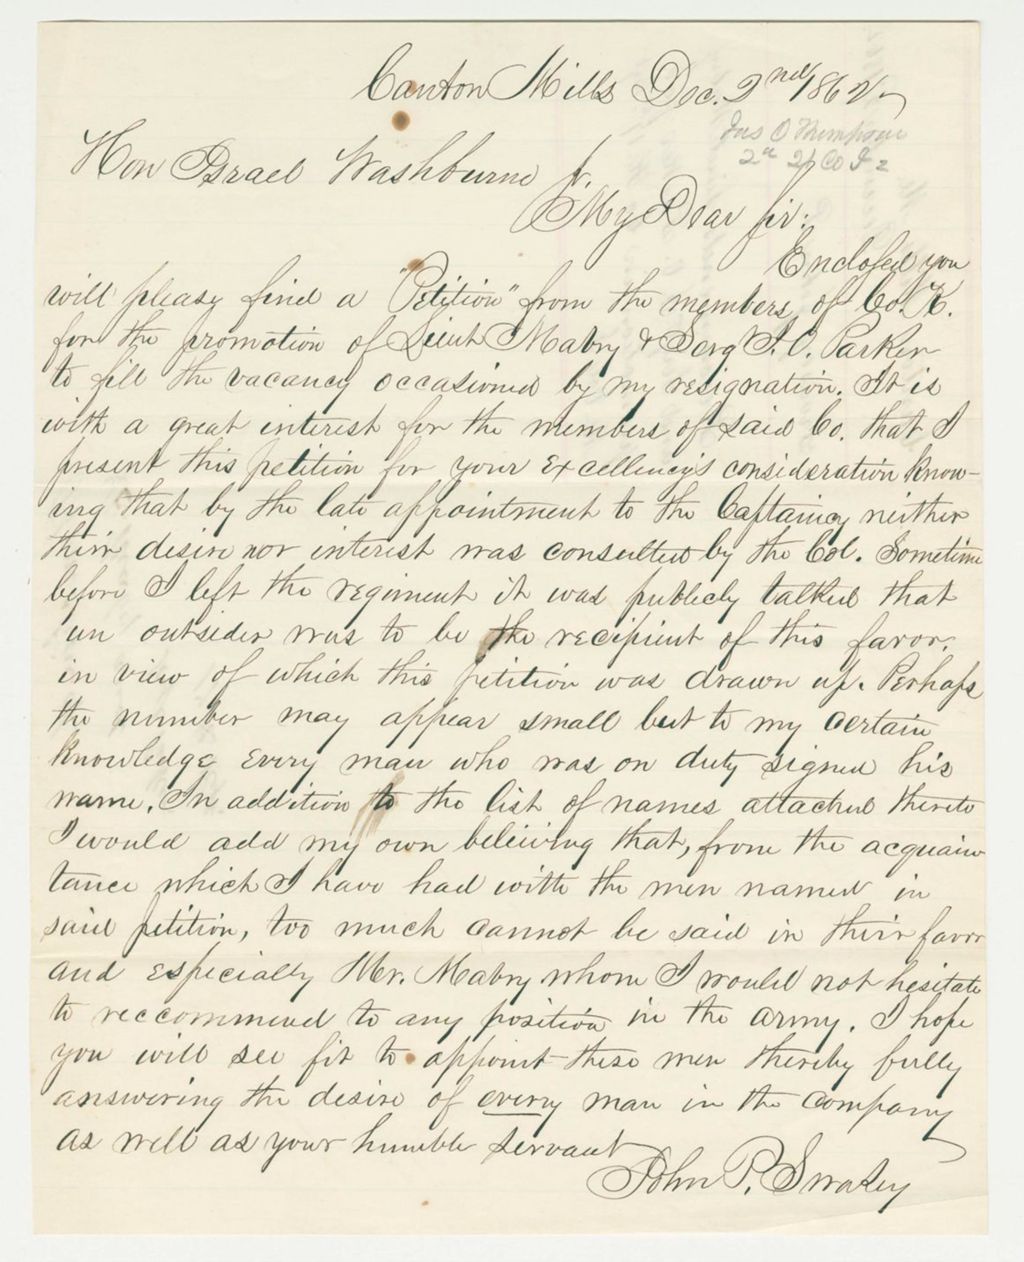 Canton Mills Dec. 2nd 1862
Jas O Thompson
2d Co I
Hon Israel Washburne Jr.
My Dear Sir:
Enclosed you
will please find a "Petition" from the members of Co. K.
for the promotion of Lieut Mabry & Serg't J. O. Parker
to fill the vacancy occasioned by my resignation. It is
with a great interest for the members of said Co. that I
present this petition for your Excellency's consideration know-
ing that by the late appointment to the Captaincy neither
their desire nor interest was consulted by the Col. Sometime
before I left the regiment it was publicly talked that
an outsider was to be the recipient of this favor.
in view of which this petition was drawn up. Perhaps
the number may appear small but to my certain
knowledge every man who was on duty signed his
name. In addition to the list of names attached thereto
I would add my own beleiving that, from the acquain
tance which I have had with the men named in
said petition, too much cannot be said in their favor
and especially Mr. Mabry whom I would not hesitate
to reccommend to any position in the army. I hope
you will see fit to appoint these men thereby fully
answering the desire of every man in the company
as well as your humble servant
John P. Swasey